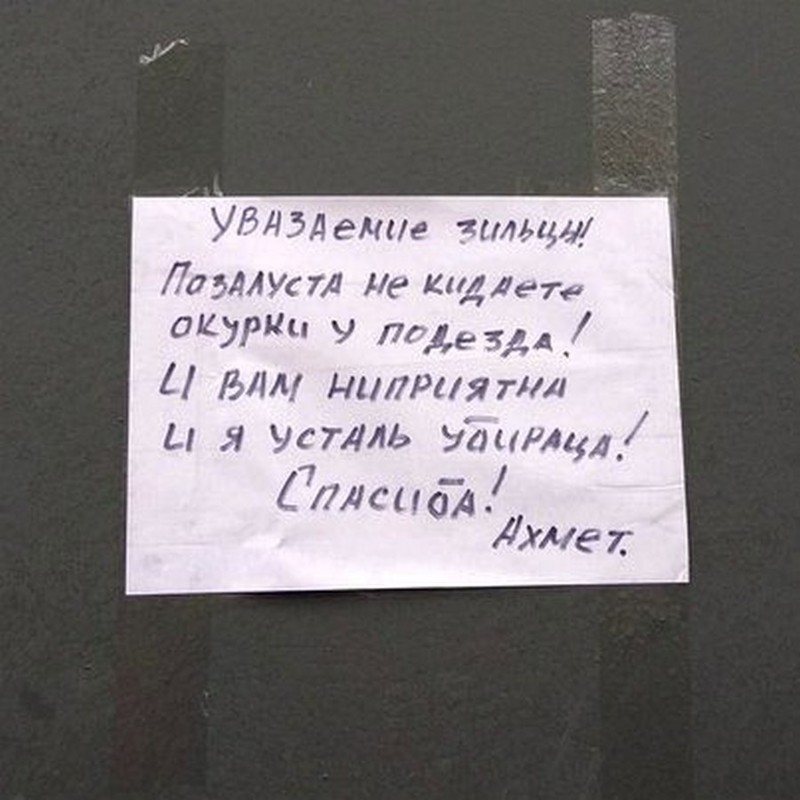 УВАЗАЕМИЕ ЗИЛЬЦЫ!
ПОЗАЛУСТА НЕ КИДАЕТЕ
ОКУРКИ У ПОДЕЗДА!
И ВАМ НИПРИЯТНА
И Я УСТАЛЬ УБИРАЦА!
СПАСИБА!
АХМЕТ.